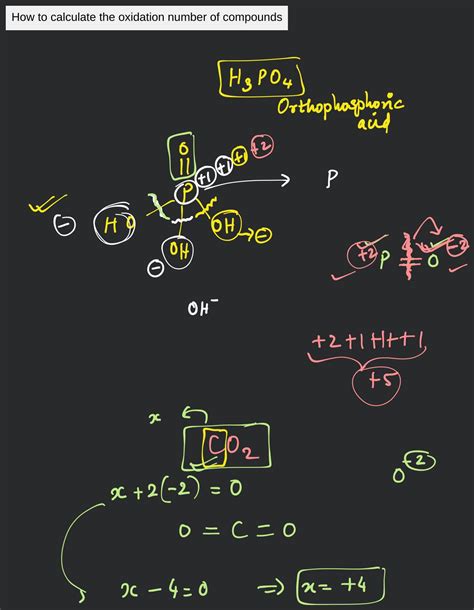 How to calculate the oxidation number of compounds
H₃PO₄
Orthophosphoric
acid
O
+1 +1 +1 +2
P
P
− HO
OH
OH → −
−
+2 P = O −2
OH⁻
+2+1+1++1
+5
x
CO₂
O −2
x+2(−2) = 0
O = C = O
x − 4 = 0 ⇒ x = +4